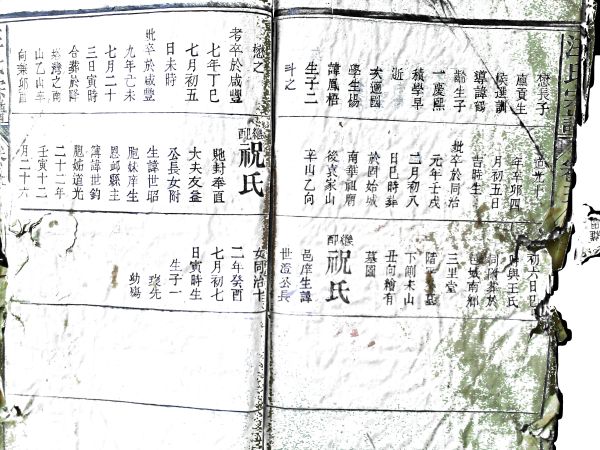 汪氏宗譜
長子
廩貢生
候選訓
導諱錫
齡生子
一慶熙
積學早
逝
次適國
學生揚
諱鳳梧
生子二
斗之
道光十
年辛卯四
月初五日
吉時生
妣卒於同治
元年壬戌
二月初八
日巳時葬
於固始城
南華祖廟
後袁家山
辛山乙向
初六日巳
與王氏
葬於
城南鄉
三里堂
下 未山
丑向繪有
墓圖
繼配祝氏
邑庠生諱
世澄公長
懋之
考卒於咸豐
七年丁巳
七月初五
日未時
妣卒於咸豐
九年己未
七月二十
三日寅時
合葬於
灣之南
山乙山辛
向乘卯酉
繼配祝氏
馳封奉直
大夫友益
公長女附
生諱世昭
胞妹庠生
恩卹縣主
簿諱世鈞
胞姊道光
二十二年
壬寅十二
月二十六
女同治十
二年癸酉
七月初七
日寅時生
生子一
先
幼殤